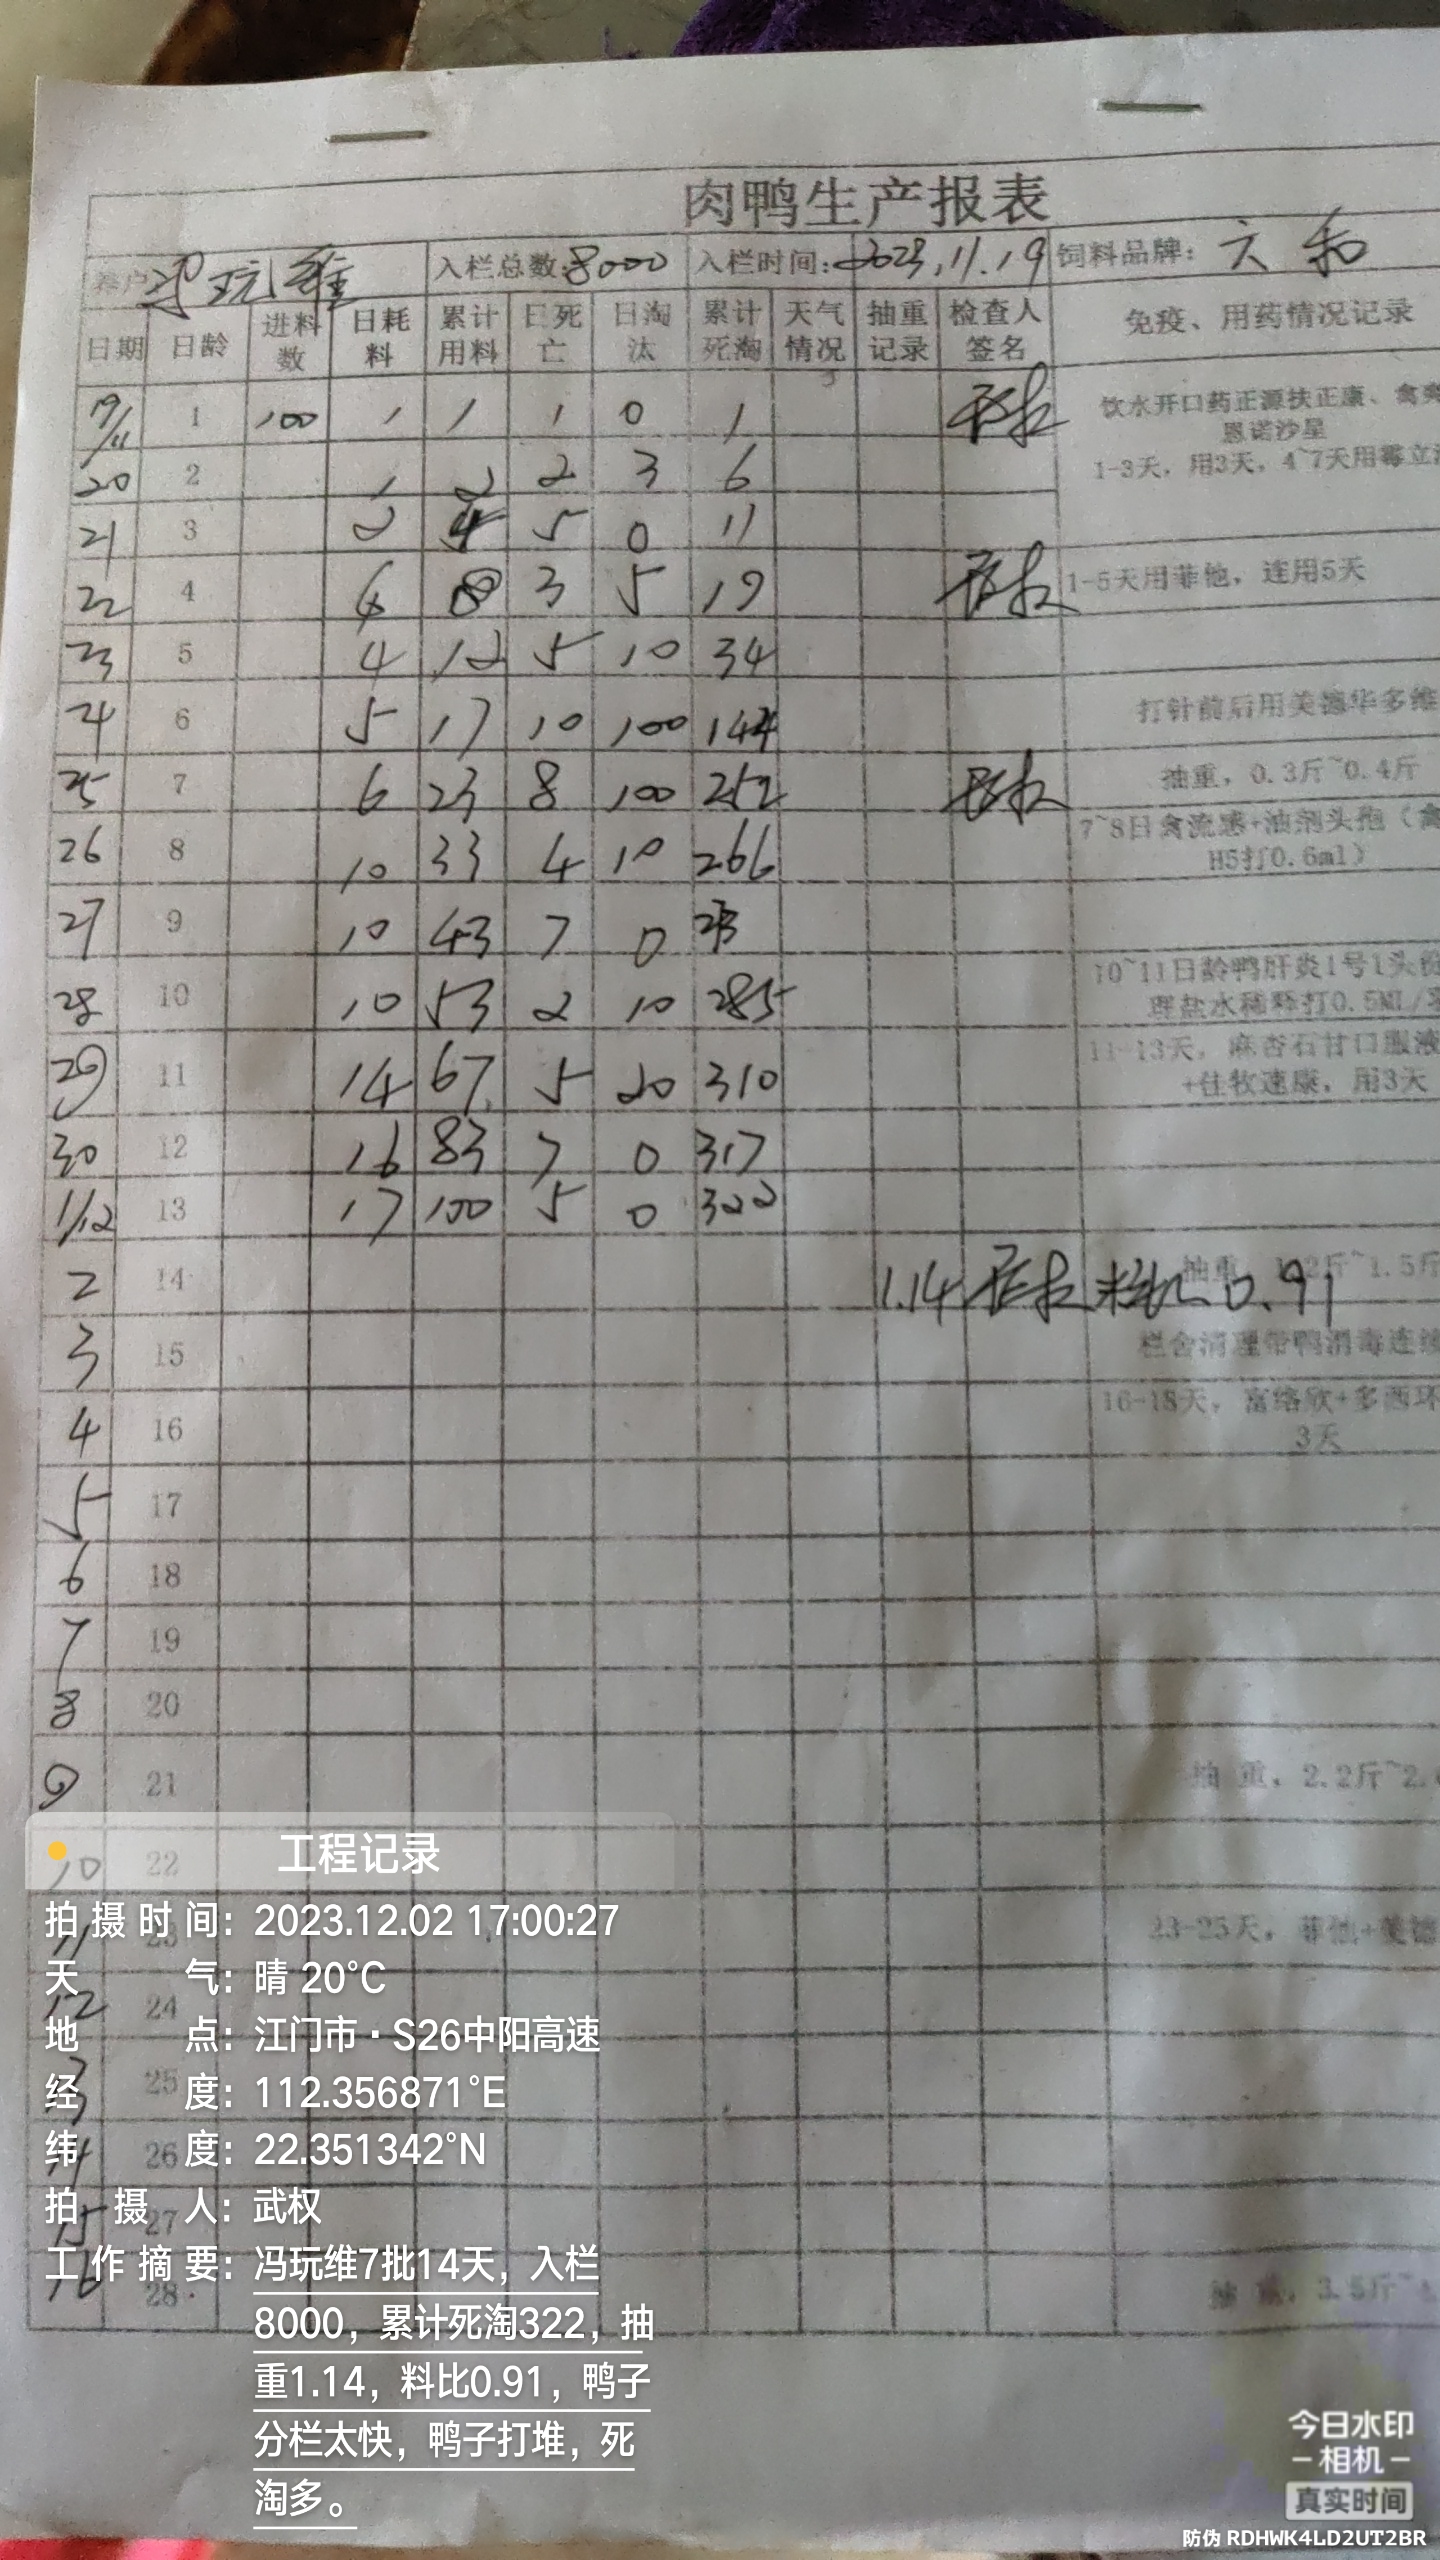 肉鸭生产报表
养户 冯玩维 入栏总数:8000 入栏时间:2023.11.19 饲料品牌: 六和
日期 日龄 进料数 日耗料 累计用料 日死亡 日淘汰 累计死淘 天气情况 抽重记录 检查人签名 免疫、用药情况记录
19/11 1 100 1 1 1 0 1 饮水开口药正源扶正康、禽
恩诺沙星
1-3天，用3天，4~7天用霉立
20 2 1 2 2 3 6
21 3 2 4 5 0 11
22 4 4 8 3 5 19 1-5天用菲他，连用5天
23 5 4 12 5 10 34
24 6 5 17 10 100 144 打针前后用美德华多维
25 7 6 23 8 100 252 抽重，0.3斤~0.4斤
26 8 10 33 4 10 266 7~8日禽流感+油剂头孢（禽
H5打0.6ml）
27 9 10 43 7 0 273
28 10 10 53 2 10 285 10~11日龄鸭肝炎1号1头份
理盐水稀释打0.5ML/
29 11 14 67 5 20 310 11-13天，麻杏石甘口服液
+佳牧速康，用3天
30 12 16 83 7 0 317
1/12 13 17 100 5 0 322
2 14 1.14 料比0.91 抽重 2斤~1.5斤
3 15 栏舍清理带鸭消毒连续
4 16 16-18天，富络欣+多西环
3天
5 17
6 18
7 19
8 20
9 21 抽 重，2.2斤~2.
10 22
11 23 23-25天，菲他+美德
12 24
13 25
14 26
15 27
16 28 抽 重，3.5斤~
工程记录
拍摄时间：2023.12.02 17:00:27
天气：晴 20°C
地点：江门市·S26中阳高速
经度：112.356871°E
纬度：22.351342°N
拍摄人：武权
工作摘要：冯玩维7批14天，入栏
8000，累计死淘322，抽
重1.14，料比0.91，鸭子
分栏太快，鸭子打堆，死
淘多。
今日水印
-相机-
真实时间
防伪 RDHWK4LD2UT2BR